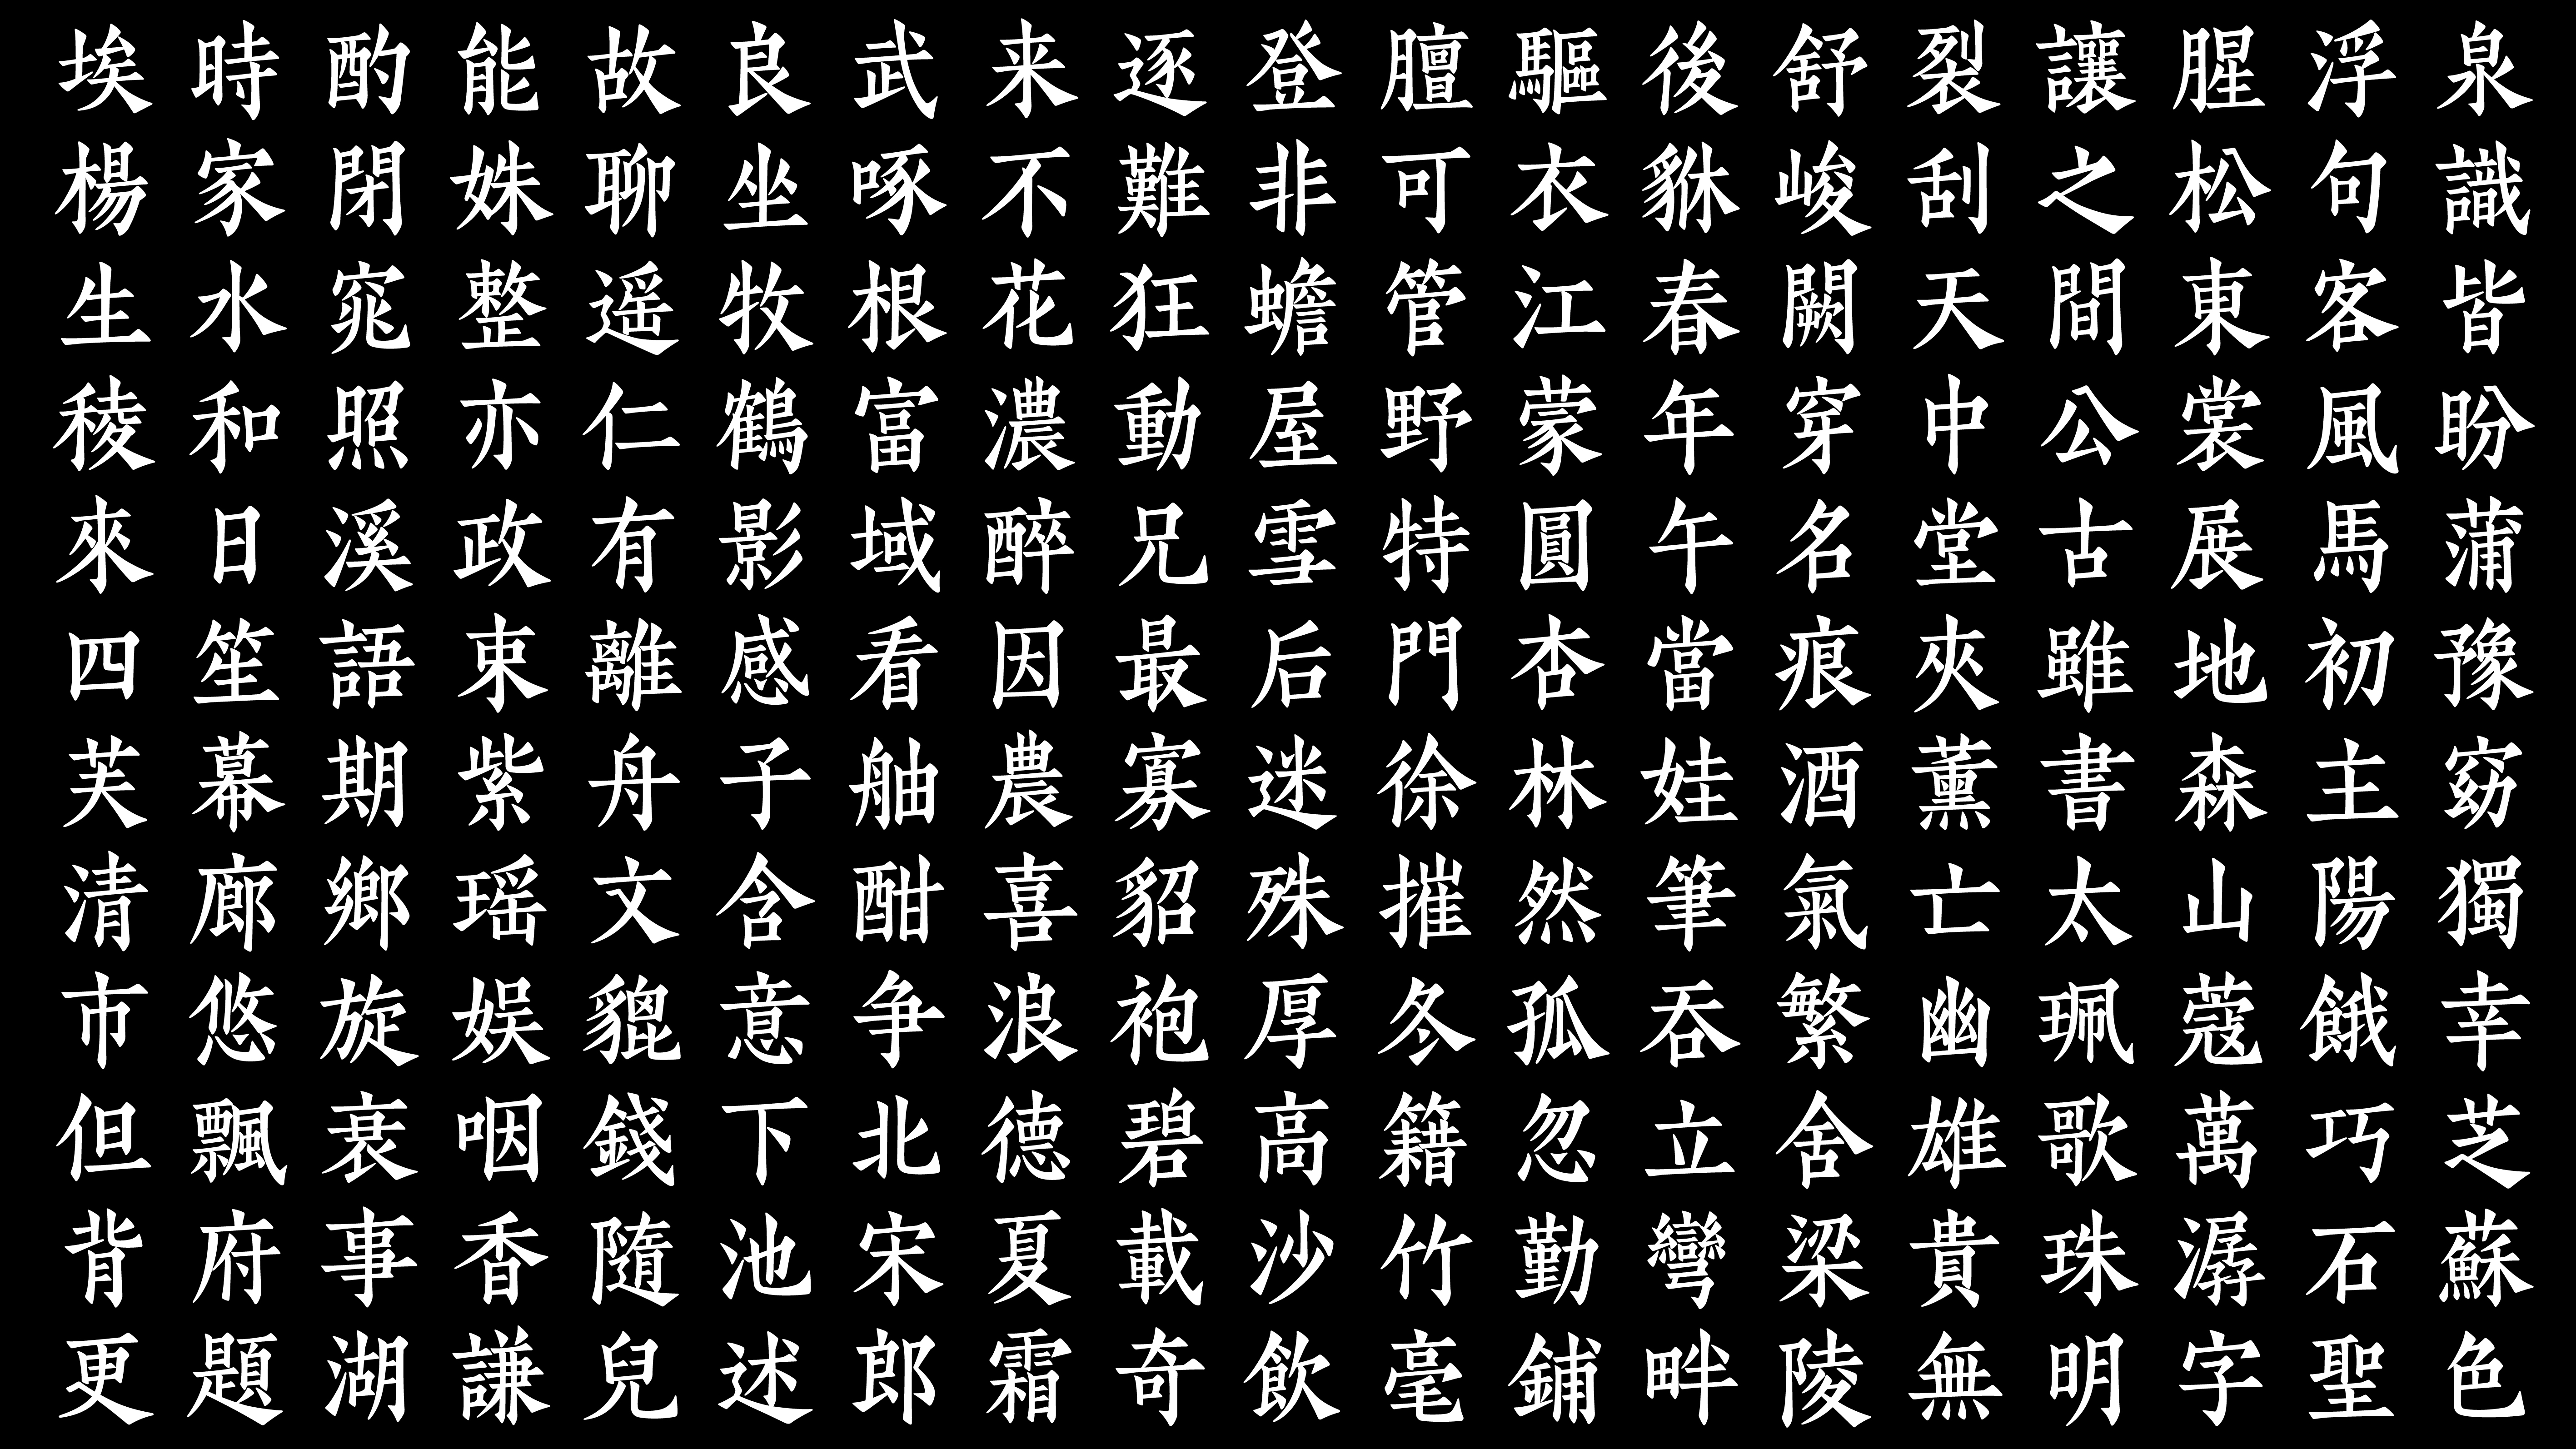 埃時酌能故良武来逐登膻驅後舒裂讓腥浮泉
楊家閉姝聊坐啄不難非可衣貅峻刮之松句識
生水窕整遥牧根花狂蟾管江春闕天間東客皆
稜和照亦仁鶴富濃動屋野蒙年穿中公裳風盼
來日溪政有影域醉兄雪特圓午名堂古展馬蒲
四笙語束離感看因最后門杏當痕夾雖地初豫
芙幕期紫舟子舳農寡迷徐林娃酒薰書森主窈
清廊鄉瑶文含酣喜貂殊摧然筆氣亡太山陽獨
市悠旋娱貔意争浪袍厚冬孤吞繁幽珮蔻餓幸
但飄衰咽錢下北德碧高籍忽立舍雄歌萬巧芝
背府事香隨池宋夏載沙竹勤彎梁貴珠潺石蘇
更題湖謙兒述郎霜奇飲毫鋪畔陵無明字聖色